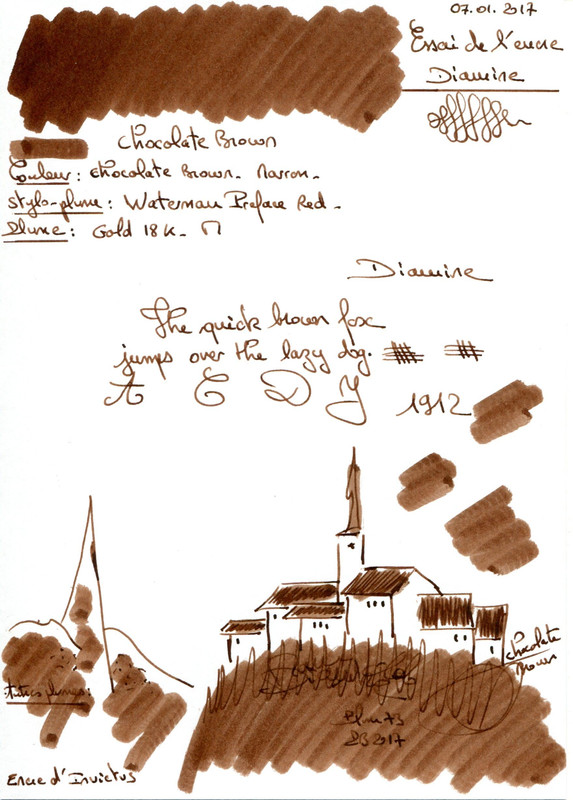 07.01.2017
Essai de l'encre
Diamine
Chocolate Brown
Couleur : Chocolate Brown - Marron -
Stylo-plume : Waterman Preface Red -
Plume : Gold 18 K - M
Diamine
The quick brown fox
jumps over the lazy dog.
A E D Y 1912
Chocolate
Brown
Autres plumes :
2017
Encre d'Invictus